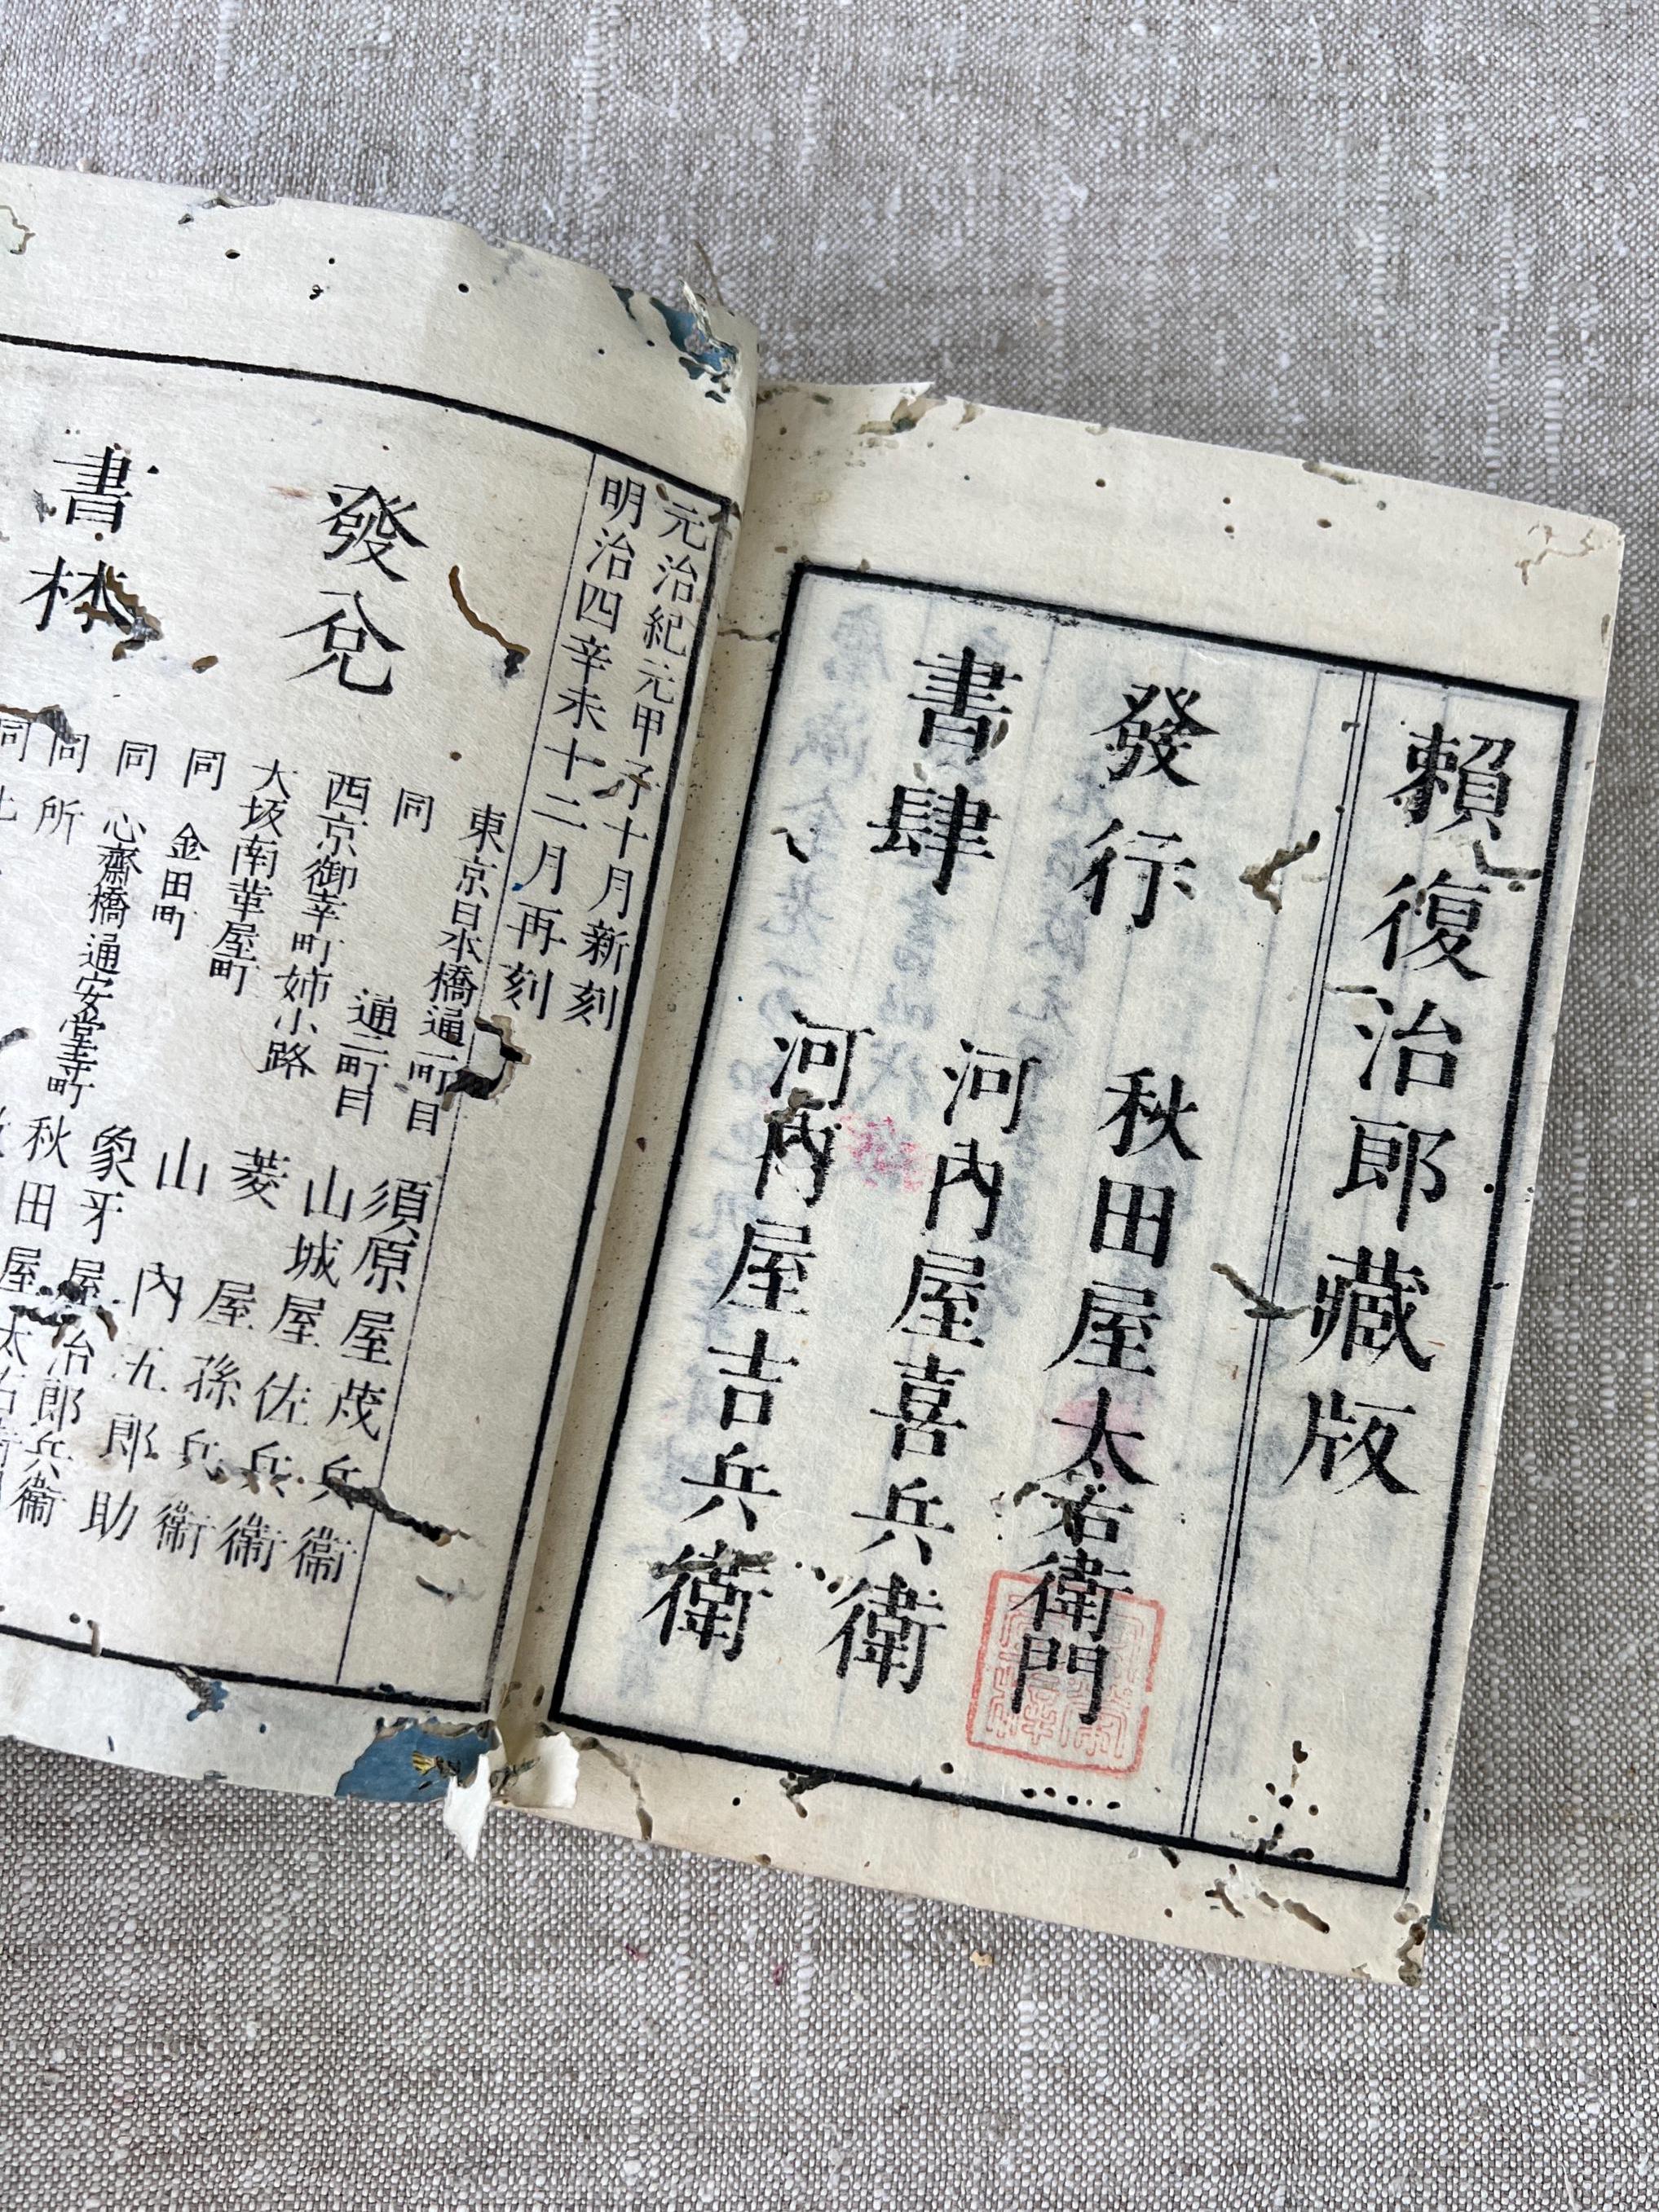 賴復治郎藏版
發行
書肆
秋田屋太右衛門
河内屋喜兵衛
河内屋吉兵衛
元治紀元甲子十月新刻
明治四辛未十二月再刻
發兌
書林
東京日本橋通一町目 須原屋茂兵衞
同 通二町目 山城屋佐兵衞
西京御幸町姉小路 菱屋孫兵衞
大坂南革屋町 山内五郎助
同 金田町 象牙屋治郎兵衞
同 心齋橋通安堂寺町 秋田屋太右衞門
同 所
同